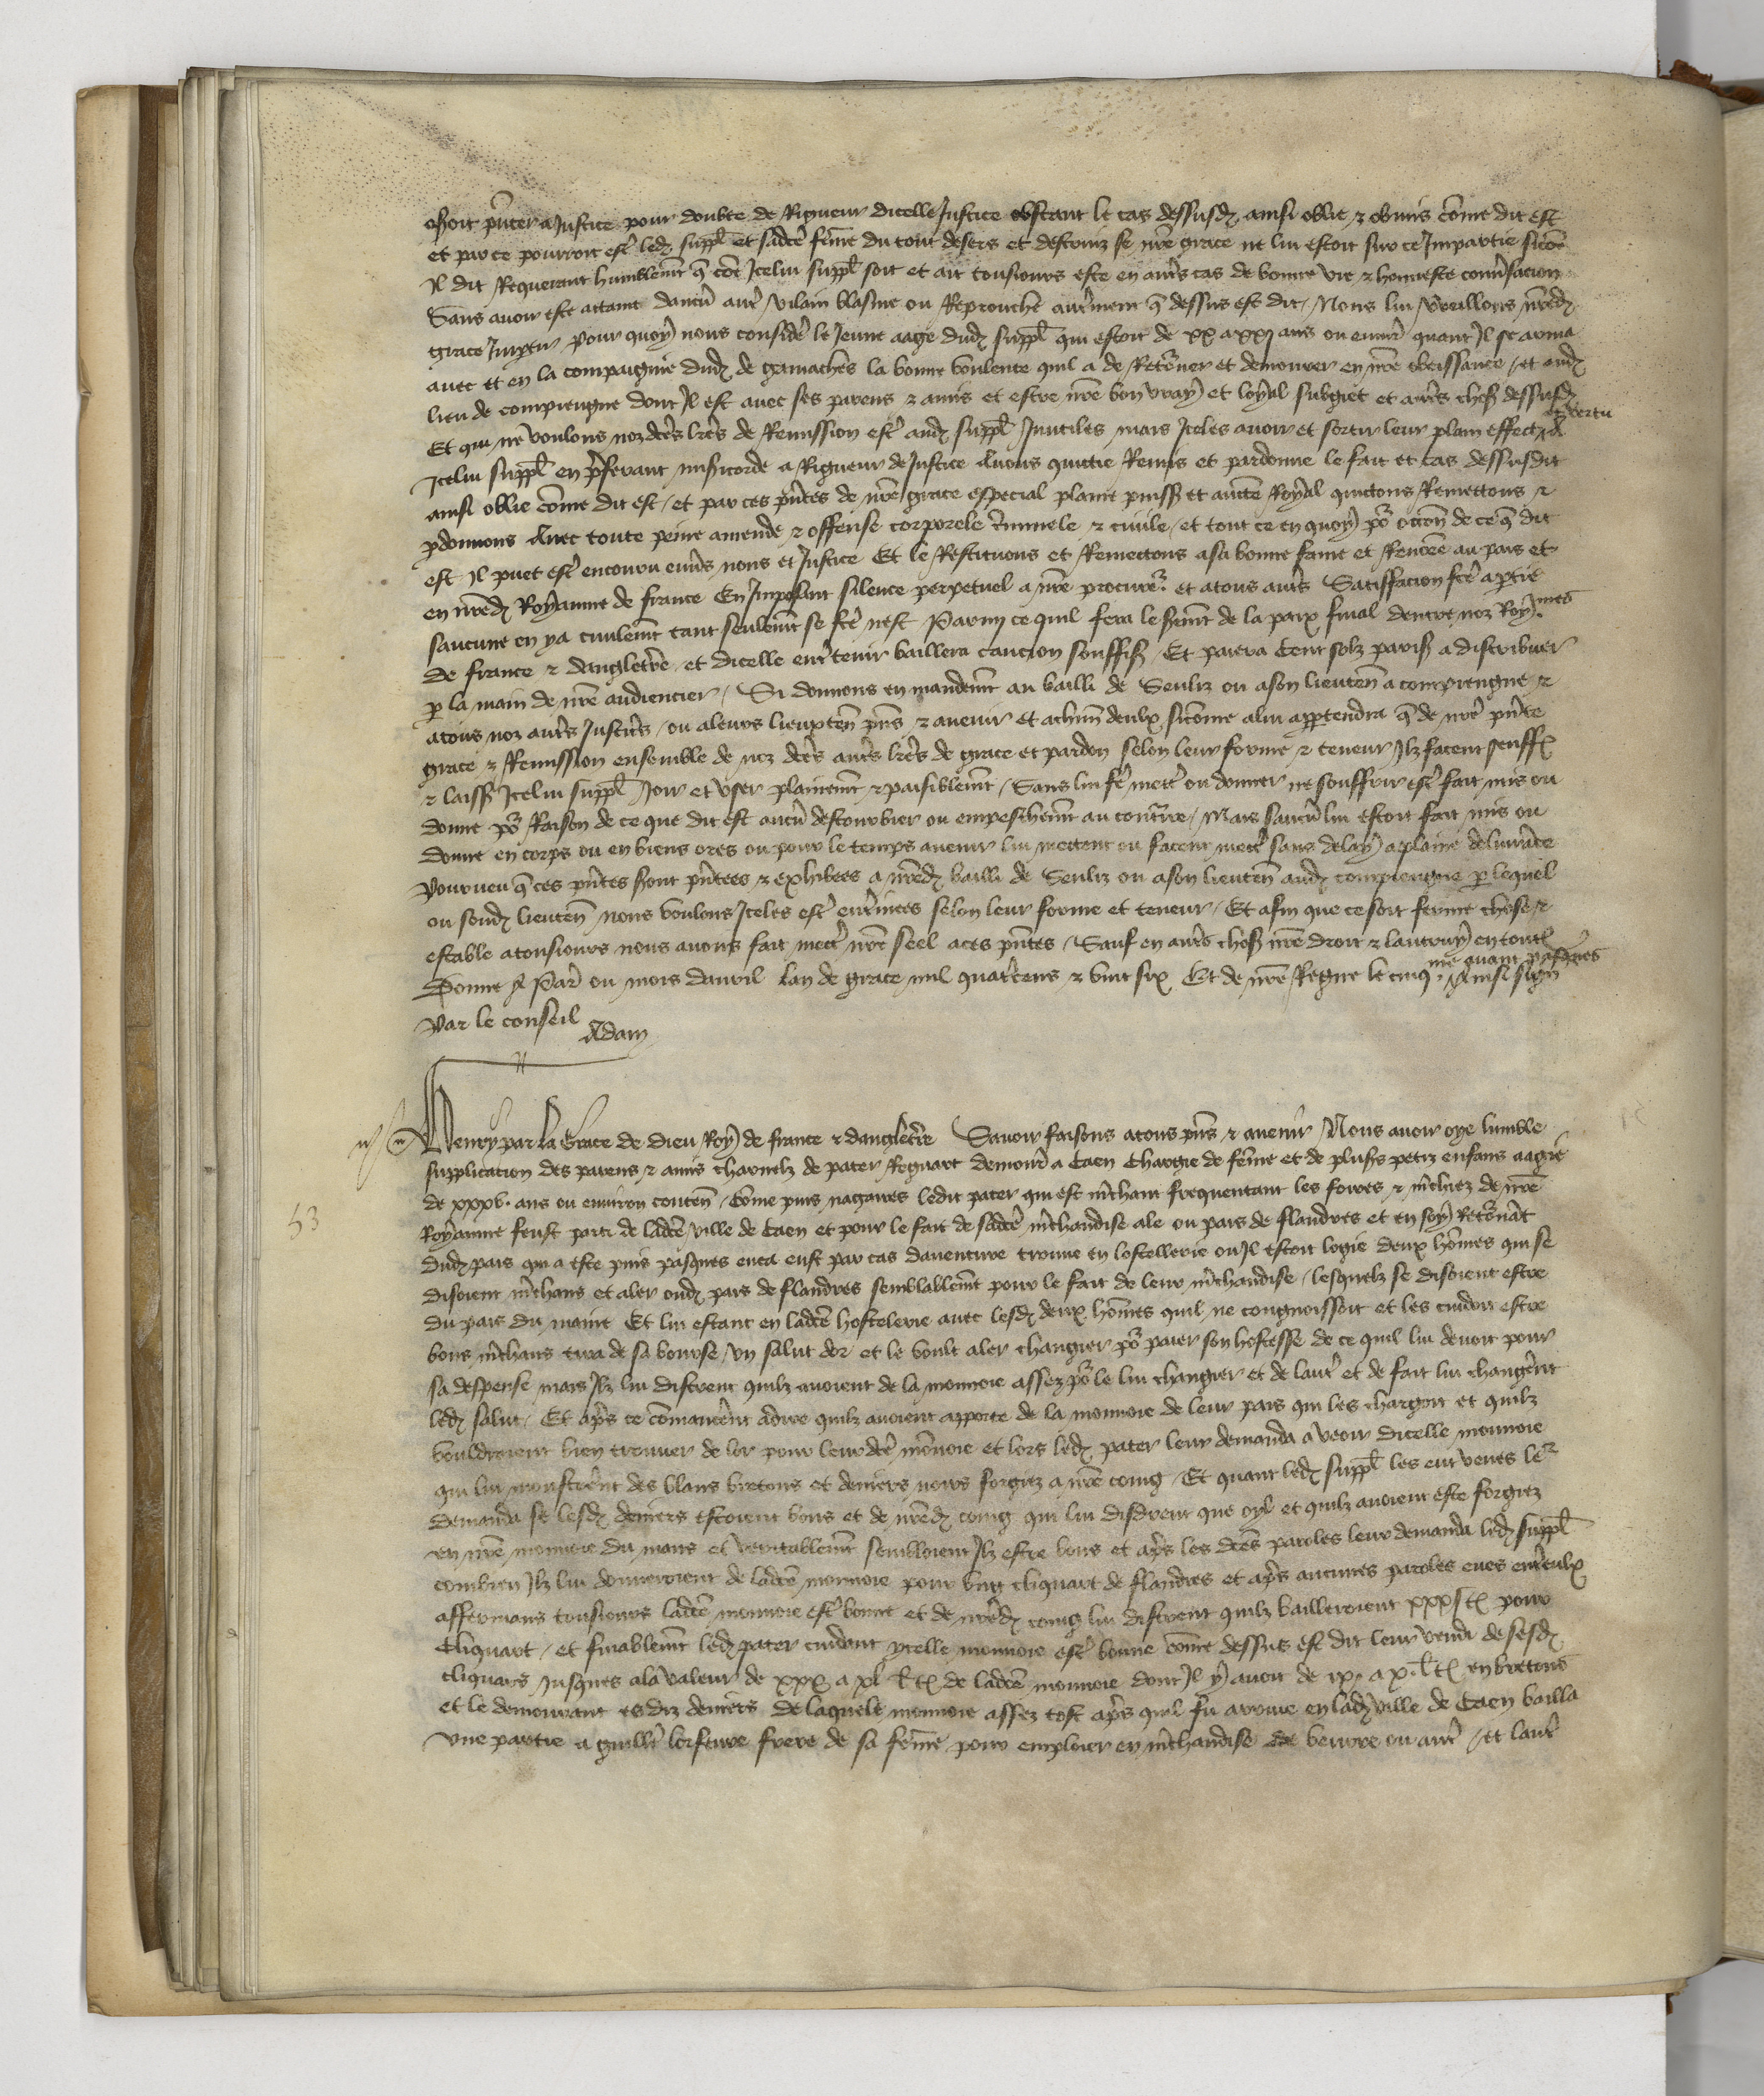 oseroit pñter a Justice pour doubte de Rigueur dicelle Justice obstant le cas dessusdz ainsi oblie & obmis cõme dit est
et par ce pourroit estr ledz suppl et sadcte fẽme du tout desers et destruiz se nr̃e grace ne lui estoit sur ce Impartie sicõe
Il dit Requerant humblemt q̃ cõe Icelui suppl soit et ait tousiours este en autrs cas de bonne vie & honneste conũsacion
Sans avoir este attaint daucũ autr vilain blasme ou Reprouche autrment q̃ dessus est dit Nous lui vueillons nr̃edz
grace Imptir Pour quoy nous considere le Jeune aage dudz suppl qui estoit de xx a xxj ans ou environ quant Il se arma
avec et en la compaignie dudz de gamaches la bonne voulente quil a de Retourner et demourer en nr̃e obeissance et oudz
lieu de compiengne dont Il est avec ses parens & amis et estre nr̃e bon vray et loyal subgiet et autrs choss dessusdz
Et qui ne voulons nozdctes lr̃es de Remission estr audz suppl Inutiles mais Iceles avoir et sortir leur plain effect & vertu A
Icelui suppl en pr̃ferant misericorde a Rigueur de Justice Avons quictie Remis et pardonne le fait et cas dessusdit
ainsi oblie cõme dit est et par ces pñtes de nr̃e grace especial plaine puiss et aucte Royal quictons Remettons &
pdonnons Avec toute peine amende & offense corporele criminele & civile et tout ce en quoy po᷑ occõn de ce q̃ dit
est Il puet estr encouru envers nous et Justice Et le Restituons et Remettons a sa bonne fame et Renõee au pais et
en nr̃edz Royaume de france En Imposant silence perpetuel a nr̃e procure᷑ et a tous autrs Satisfacion fcte a ptie
saucune en y a civilemt tant seulemt se fcte nest Parmi ce quil fera le seremt de la paix final dentre noz Roymes
de france & dangleterre et dicelle entretenir baillera caucion souffiss Et paiera Cent solz pariss a distribuer
p la main de nr̃e audiencier Si donnons en mandemt au bailli de Senliz ou a son lieuten̄ a compiengne &
a tous noz autrs Justiciers ou a leurs lieuxten̄ pñs & avenir et a chũn deulx sicõme a lui appertendra q̃ de nr̃e pñte
grace & Remission ensemble de noz dctes autrs lr̃es de grace et pardon selon leur forme & teneur Ilz facent seuffr
& laiss Icelui suppl Joir et user plainemt & paisiblemt Sans lui fe mettr ou donner ne souffrir estr fait mis ou
donne po᷑ Raison de ce que dit est aucũ destourbier ou empeschemt au contraire Mais saucũ lui estoit fait mis ou
donne en corps ou en biens ores ou pour le temps avenir lui mettent ou facent mettr sans delay a plaine delivrance
Pourveu q̃ ces pñtes seront pñtees & exhibees a nr̃edz bailli de Senliz ou a son lieuten̄ audz compiengne p lequel
ou sondz lieuten̄ nous voulons Iceles estr enterinees selon leur forme et teneur Et afin que ce soit ferme chose &
estable a tousiours nous avons fait mettr nr̃e seel a ces pñtes Sauf en autrs choss nr̃e droit & lautruy en toutes
Donne A Paris ou mois davril lan de grace mil quatrcens & vint six Et de nr̃e Regne le cinqme avant pasques Ainsi signe
Par le conseil
Adam
Henry par la Grace de Dieu Roy de france & dangleterre Savoir faisons a tous pñs & avenir Nous avoir oye lumble
supplicacion des parens & amis charnelz de pater Regnart demour a Caen Chargie de fẽme et de plusrs petiz enfans aagie
de xxxv. ans ou environ conten̄ Cõme puis nagaires ledit pater qui est mrchant frequentant les foires & mrchiez de nr̃e
Royaume feust parti de ladcte ville de Caen et pour le fait de sadcte mrchandise ale ou pais de flandres et en soy Retornãt
dudz pais qui a este puis pasques enca eust par cas daventure trouve en lostellerie ou Il estoit logie deux hõmes qui se
disoient mrchans et aler oudz pais de flandres semblablemt pour le fait de leur mrchandise lesquelz se disoient estre
du pais du maine Et lui estant en ladcte hostelerie avec lesdz deux hõmes quil ne congnoissoit et les cuidoit estre
bons mrchans tira de sa bourse un salut dor et le voult aler changier po᷑ paier son hostesse de ce quil lui devoit pour
sa despense mais Ilz lui distrent quilz avoient de la monnoie assez po᷑ le lui changier et de lautr et de fait lui changerent
ledz salut Et aprs ce cõmancerent a dire quilz avoient apporte de la monnoie de leur pais qui les chargoit et quilz
vouldroient bien trouver de lor pour leurdcte monnoie et lors ledz pater leur demanda a veoir dicelle monnoie
qui lui monstrerent des blans bretons et deniers noirs forgiez a nr̃e coing Et quant ledz suppl les eut veues le᷑
demanda se lesdz deniers estoient bons et de nr̃edz coing qui lui disdrent que oyl et quilz avoient este forgiez
en nr̃e monnoie du mans et veritablemt sembloient Ilz estre bons et aprs les dctes paroles leur demanda ledz suppl
combien Ilz lui donneroient de ladcte monnoie pour ung cliquart de flandres et aprs aucunes paroles eues entreulx
affermans tousiours ladcte monnoie estr bonne et de nr̃edz coing lui distrent quilz bailleroient xxx s t pour
Cliquart et finablemt ledz pater cuidant ycelle monnoie estr bonne cõme dessus est dit leur vendi de sesdz
cliquars Jusques a la valeur de xxx a xl l t de ladcte monnoie dont Il y avoit de ix. a x. l t en bretons
et le demourant esdiz deniers De laquele monnoie assez tost aprs quil fu arrive en ladz ville de Caen bailla
une partie a guille frere de sa fẽme pour emploier en mrchandise de beurre ou autr et lautr
53